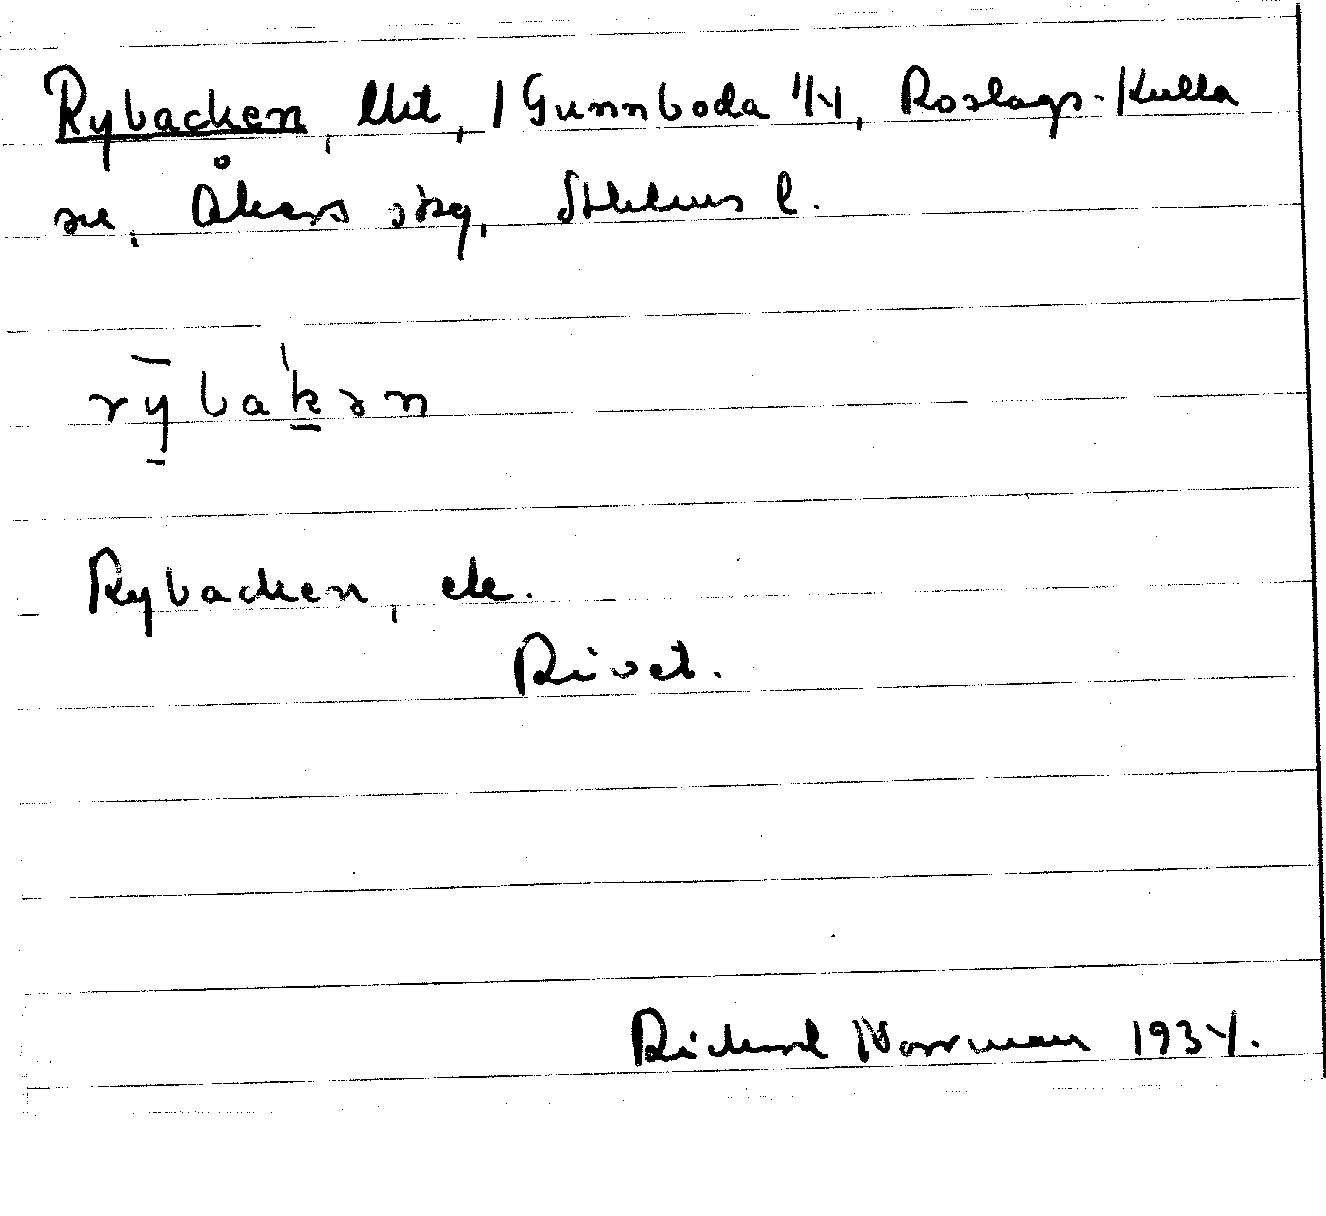 Rybacken, lht, / Gunnboda 1/4, Roslags-Kulla
sn, Åkers skg, Sthlms l.
rȳbakən
Rybacken, ek.
Rivet.
Richard Norrman 1934.